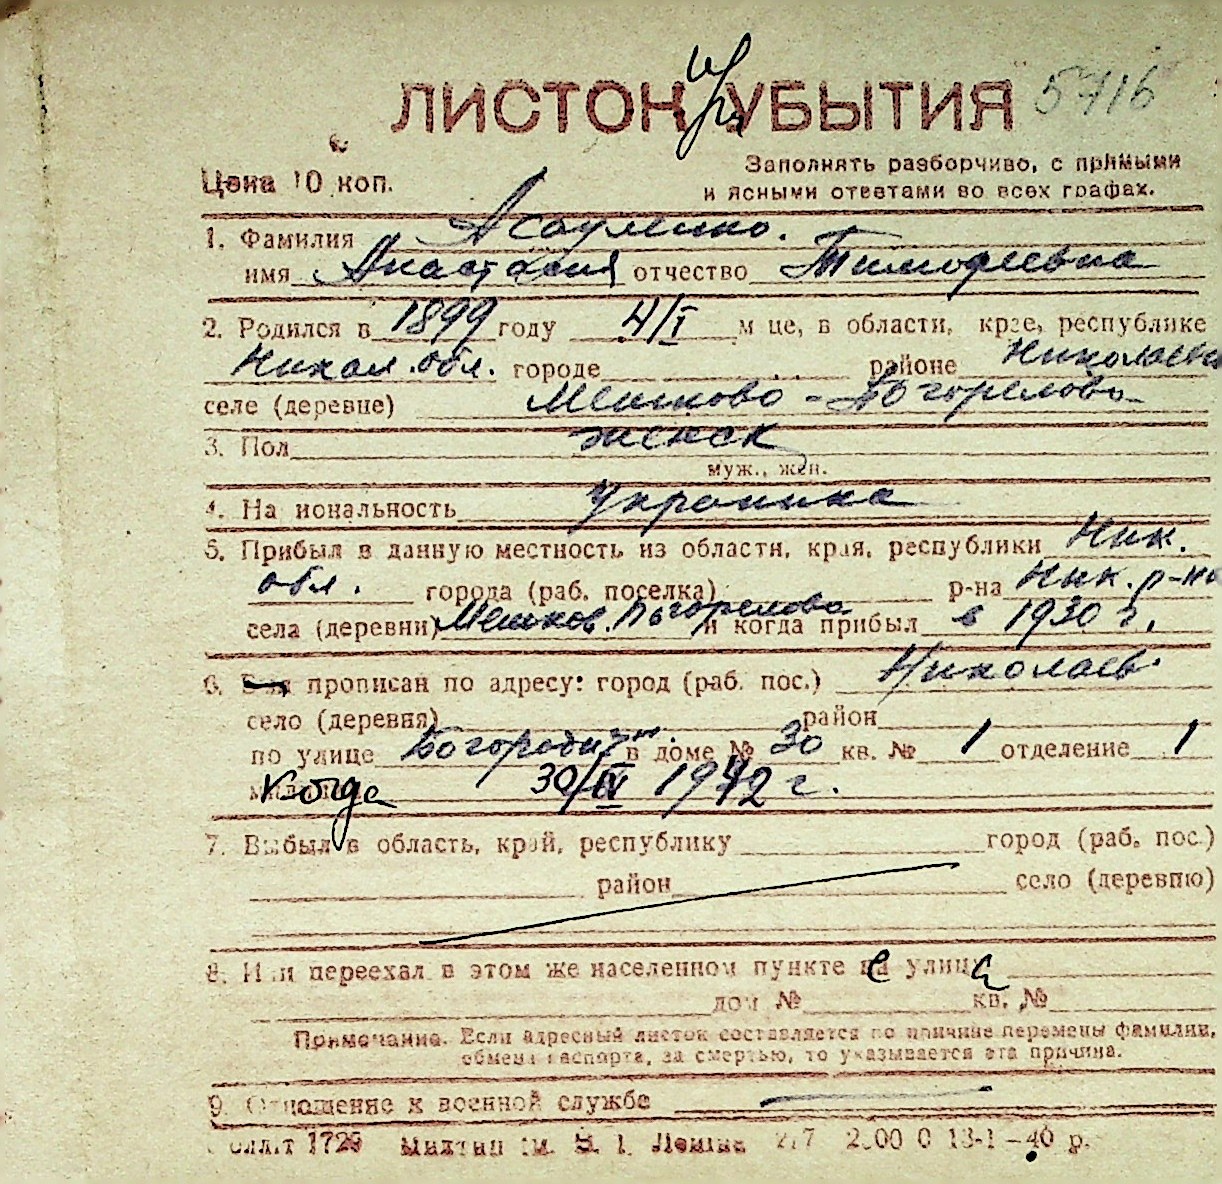 ЛИСТОК при УБЫТИЯ 5716
Заполнять разборчиво, с прямыми
Цена 10 коп. и ясными ответами во всех графах.
1. Фамилия Асауленко.
имя Анастасия отчество Тимофеевна
2. Родился в 1899 году 4/I м це, в области, крае, республике
Никол. обл. городе районе Николаевск
селе (деревне) Мешково-Погорелово
3. Пол женск
муж., жен.
4. На иональность украинка
5. Прибыл в данную местность из области, края, республики Ник.
обл. города (раб. поселка) р-на Ник. р-на
села (деревни) Мешков. Погорелово и когда прибыл в 1930 г.
6. прописан по адресу: город (раб. пос.) Николаев
село (деревня) район
по улице в доме № 30 кв. № 1 отделение 1
Когда 30/IV 1942 г.
7. Выбыл в область, край, республику город (раб. пос.)
район село (деревню)
8. Или переехал в этом же населенном пункте с улицы
дом № кв. №
Примечание. Если адресный листок составляется по причине перемены фамилии,
обмена паспорта, за смертью, то указывается эта причина.
9. Отношение к военной службе
1729 им. Ленина 13-1-40 р.